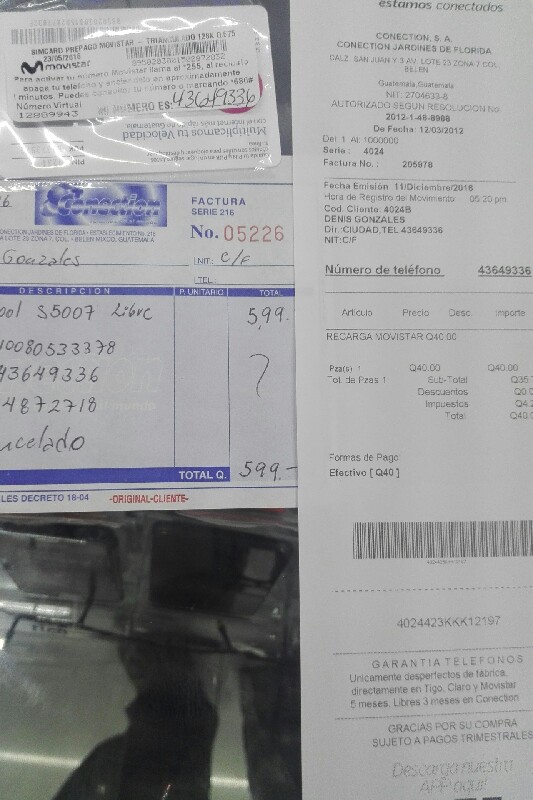 SIMCARD PREPAGO MOVISTAR - TRIAN
128K
23/05/2016
movistar
Para activar tu número Movistar llama al *255, al
apaga tu teléfono y enciéndelo en aproximadamente
minutos. Puedes consultar tu número marcando *686#
Número Virtual
12809943
NÚMERO ES: 43649336
Multiplicamos tu Velocidad
Conection
CONECTION JARDINES DE FLORIDA - ESTABLECIMIENTO No. 216
LOTE 25 ZONA 7, COL. BELEN MIXCO, GUATEMALA
FACTURA
SERIE 216
No. 05226
Gonzales
NIT: C/F
TEL:
DESCRIPCION P. UNITARIO TOTAL
S5007 Libre 5,99.
10080533378
43649336
4872718
celado
TOTAL Q. 599.-
LES DECRETO 18-04 -ORIGINAL-CLIENTE-
estamos conectados
CONECTION, S. A.
CONECTION JARDINES DE FLORIDA
CALZ. SAN JUAN Y 3 AV. LOTE 25 ZONA 7 COL.
BELEN
Guatemala,Guatemala
NIT: 2704633-8
AUTORIZADO SEGUN RESOLUCION No.
2012-1-48-8988
De Fecha: 12/03/2012
Del: 1 Al: 1000000
Serie: 4024
Factura No.: 205978
Fecha Emisión 11/Diciembre/2016
Hora de Registro del Movimiento 05:20 pm
Cod. Cliente: 4024B
DENIS GONZALES
Dir.:CIUDAD,TEL 43649336
NIT:C/F
Número de teléfono 43649336
Artículo Precio Desc. Importe
RECARGA MOVISTAR Q40.00
Pza(s) 1 Q40.00 Q40.00
Tot. de Pzas 1 Sub-Total
Descuentos
Impuestos
Total:
Formas de Pago:
Efectivo [ Q40 ]
4024423KKK12197
GARANTIA TELEFONOS
Unicamente desperfectos de fábrica,
directamente en Tigo, Claro y Movistar
6 meses. Libres 3 meses en Conection
GRACIAS POR SU COMPRA
SUJETO A PAGOS TRIMESTRALES
Descarga nuestra
APP aquí!